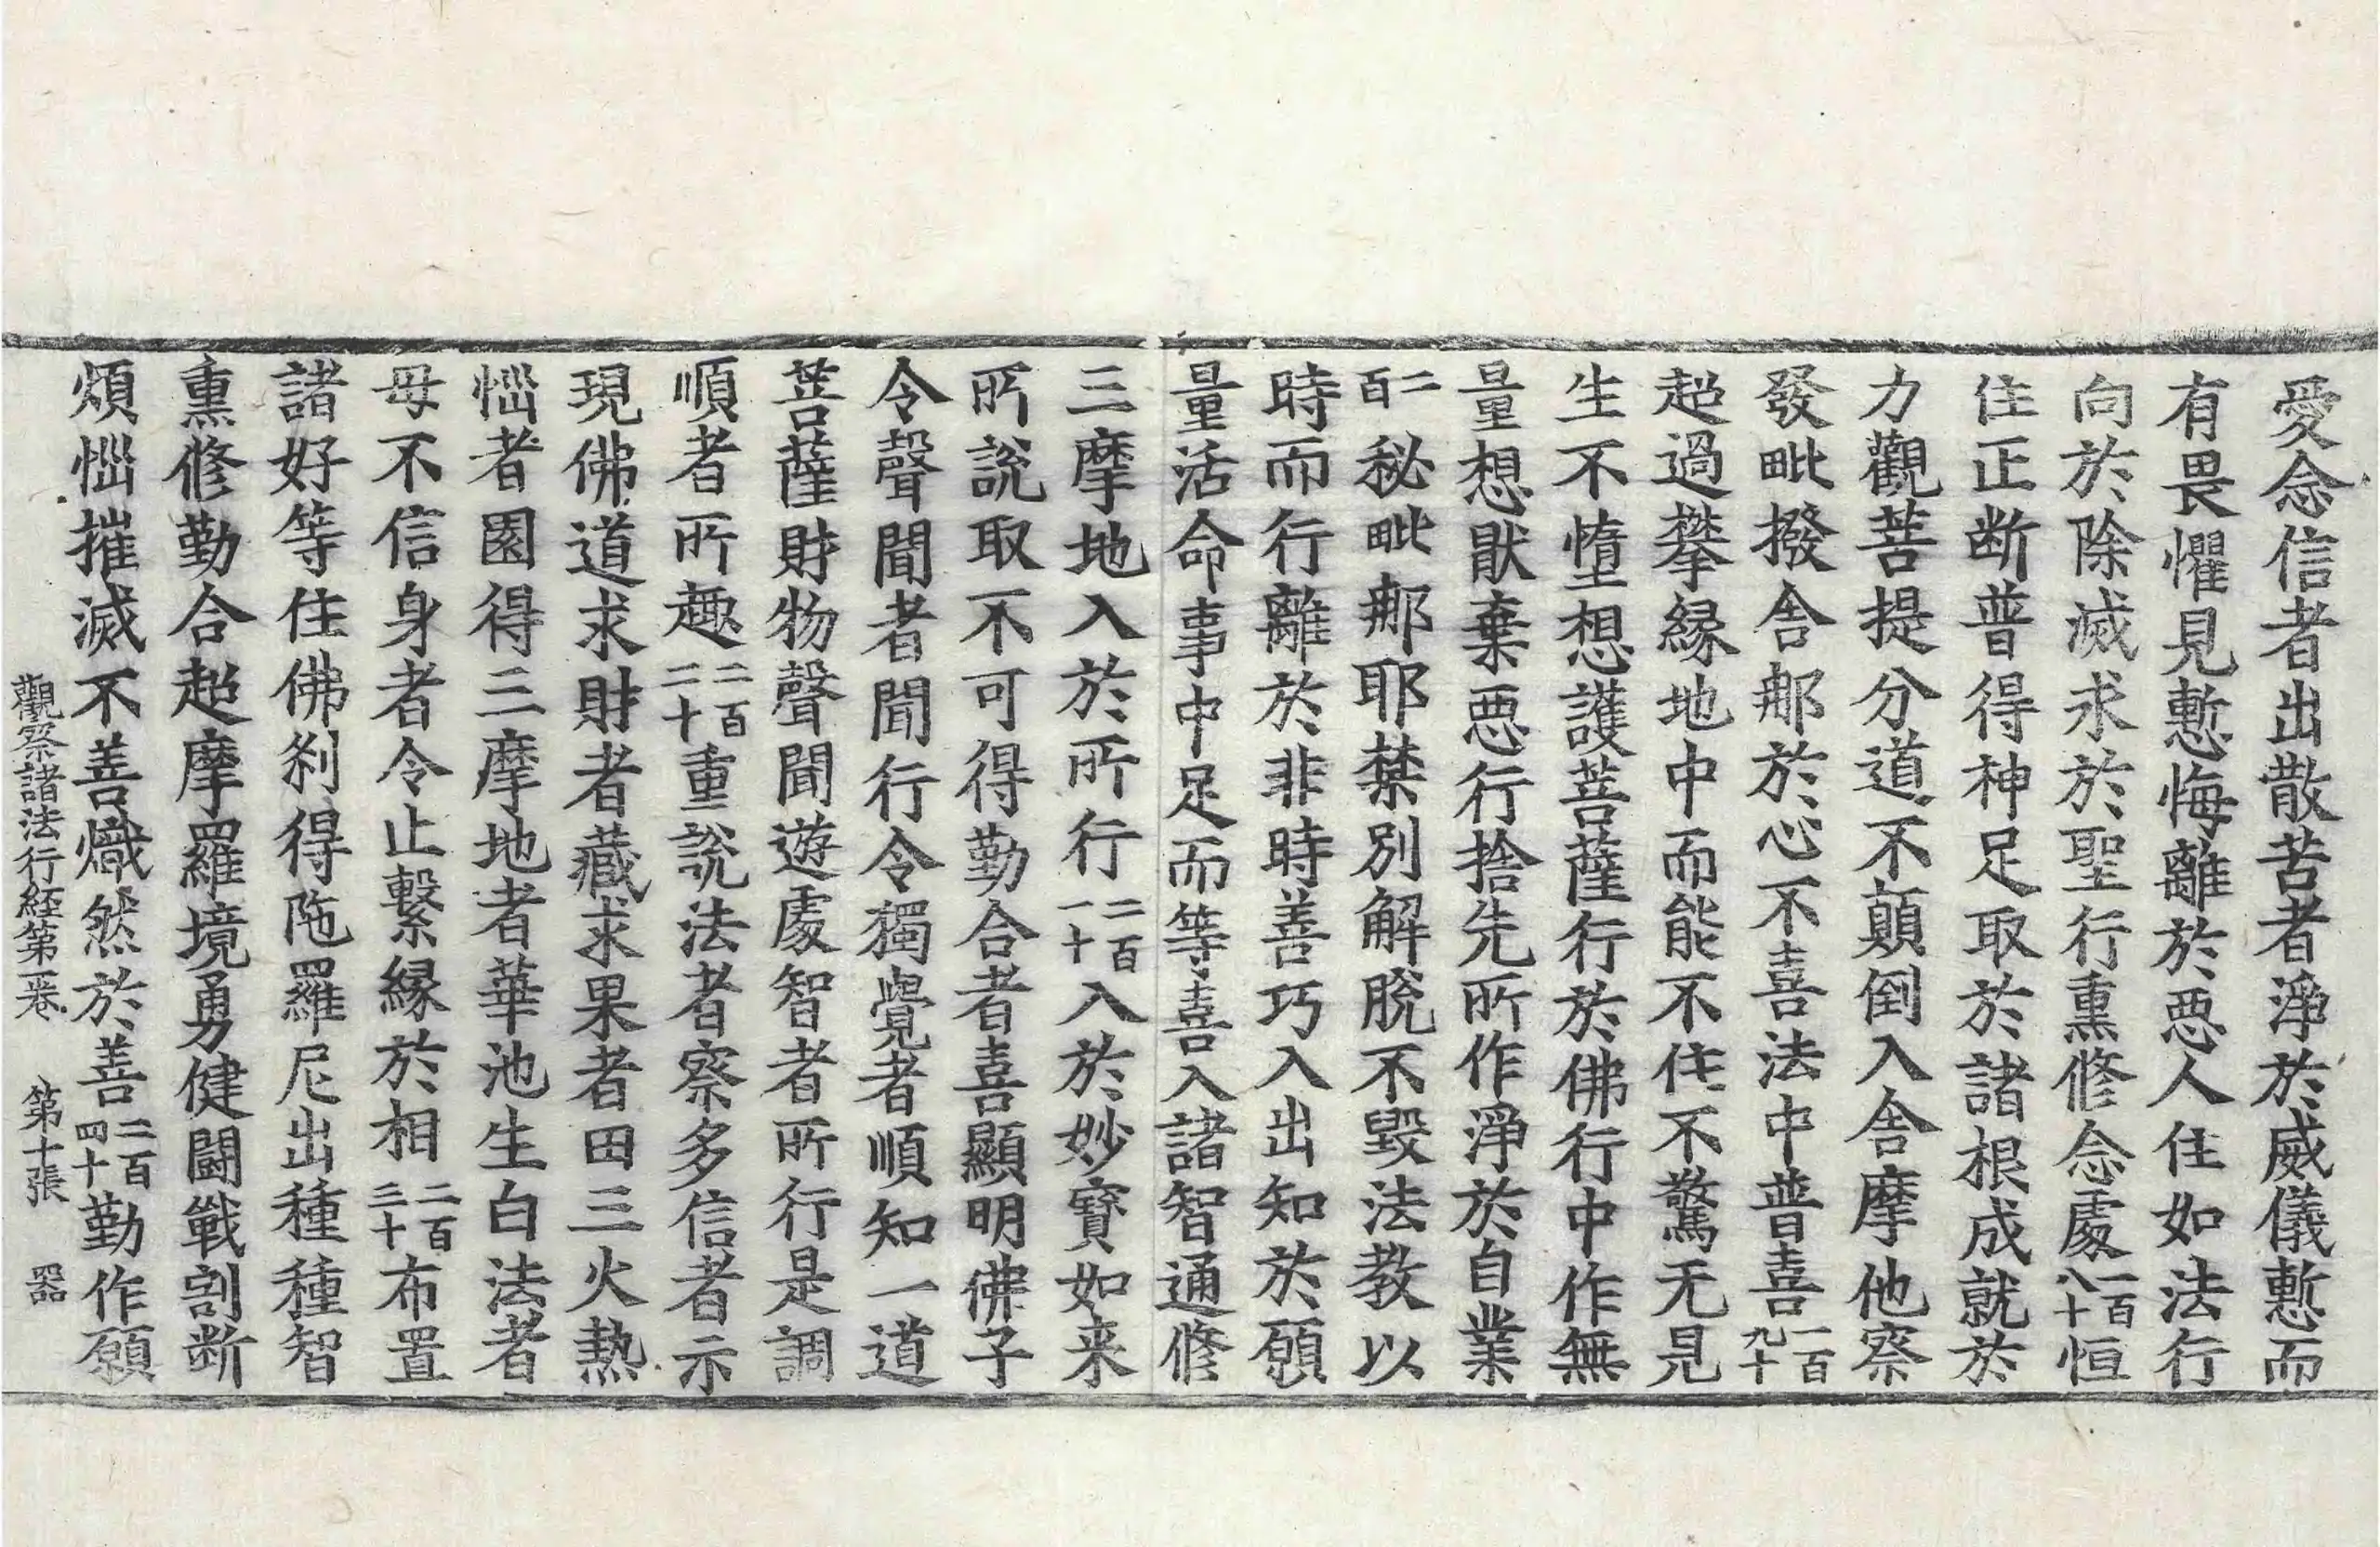 愛念信者出散苦者淨於威儀慙而
有畏懼見慙悔離於惡人住如法行
向於除滅求於聖行熏修念處一百八十恒
住正断普得神足取於諸根成就於
力觀菩提分道不顛倒入舍摩他察
發毗撥舍那於心不喜法中普喜一百九十
超過攀縁地中而能不住不驚无見
生不憻想護菩薩行於佛行中作無
量想猒棄惡行捨先所作淨於自業
二百秘毗那耶禁別解脫不毀法教以
時而行離於非時善巧入出知於願
量活命事中足而等喜入諸智通修
三摩地入於所行二百一十入於妙寶如来
所說取不可得勤合者喜顯明佛子
令聲聞者聞行令獨覺者順知一道
菩薩財物聲聞遊處智者所行是調
順者所趣二百二十重說法者察多信者示
現佛道求財者藏求果者田三火熱
惱者園得三摩地者華池生白法者
母不信身者令止繫縁於相二百三十布置
諸好等住佛刹得陁羅尼出種種智
熏修勤合超摩羅境勇健鬪戰割断
煩惱摧滅不善熾然於善二百四十勤作願
觀察諸法行経第一卷 第十張 器